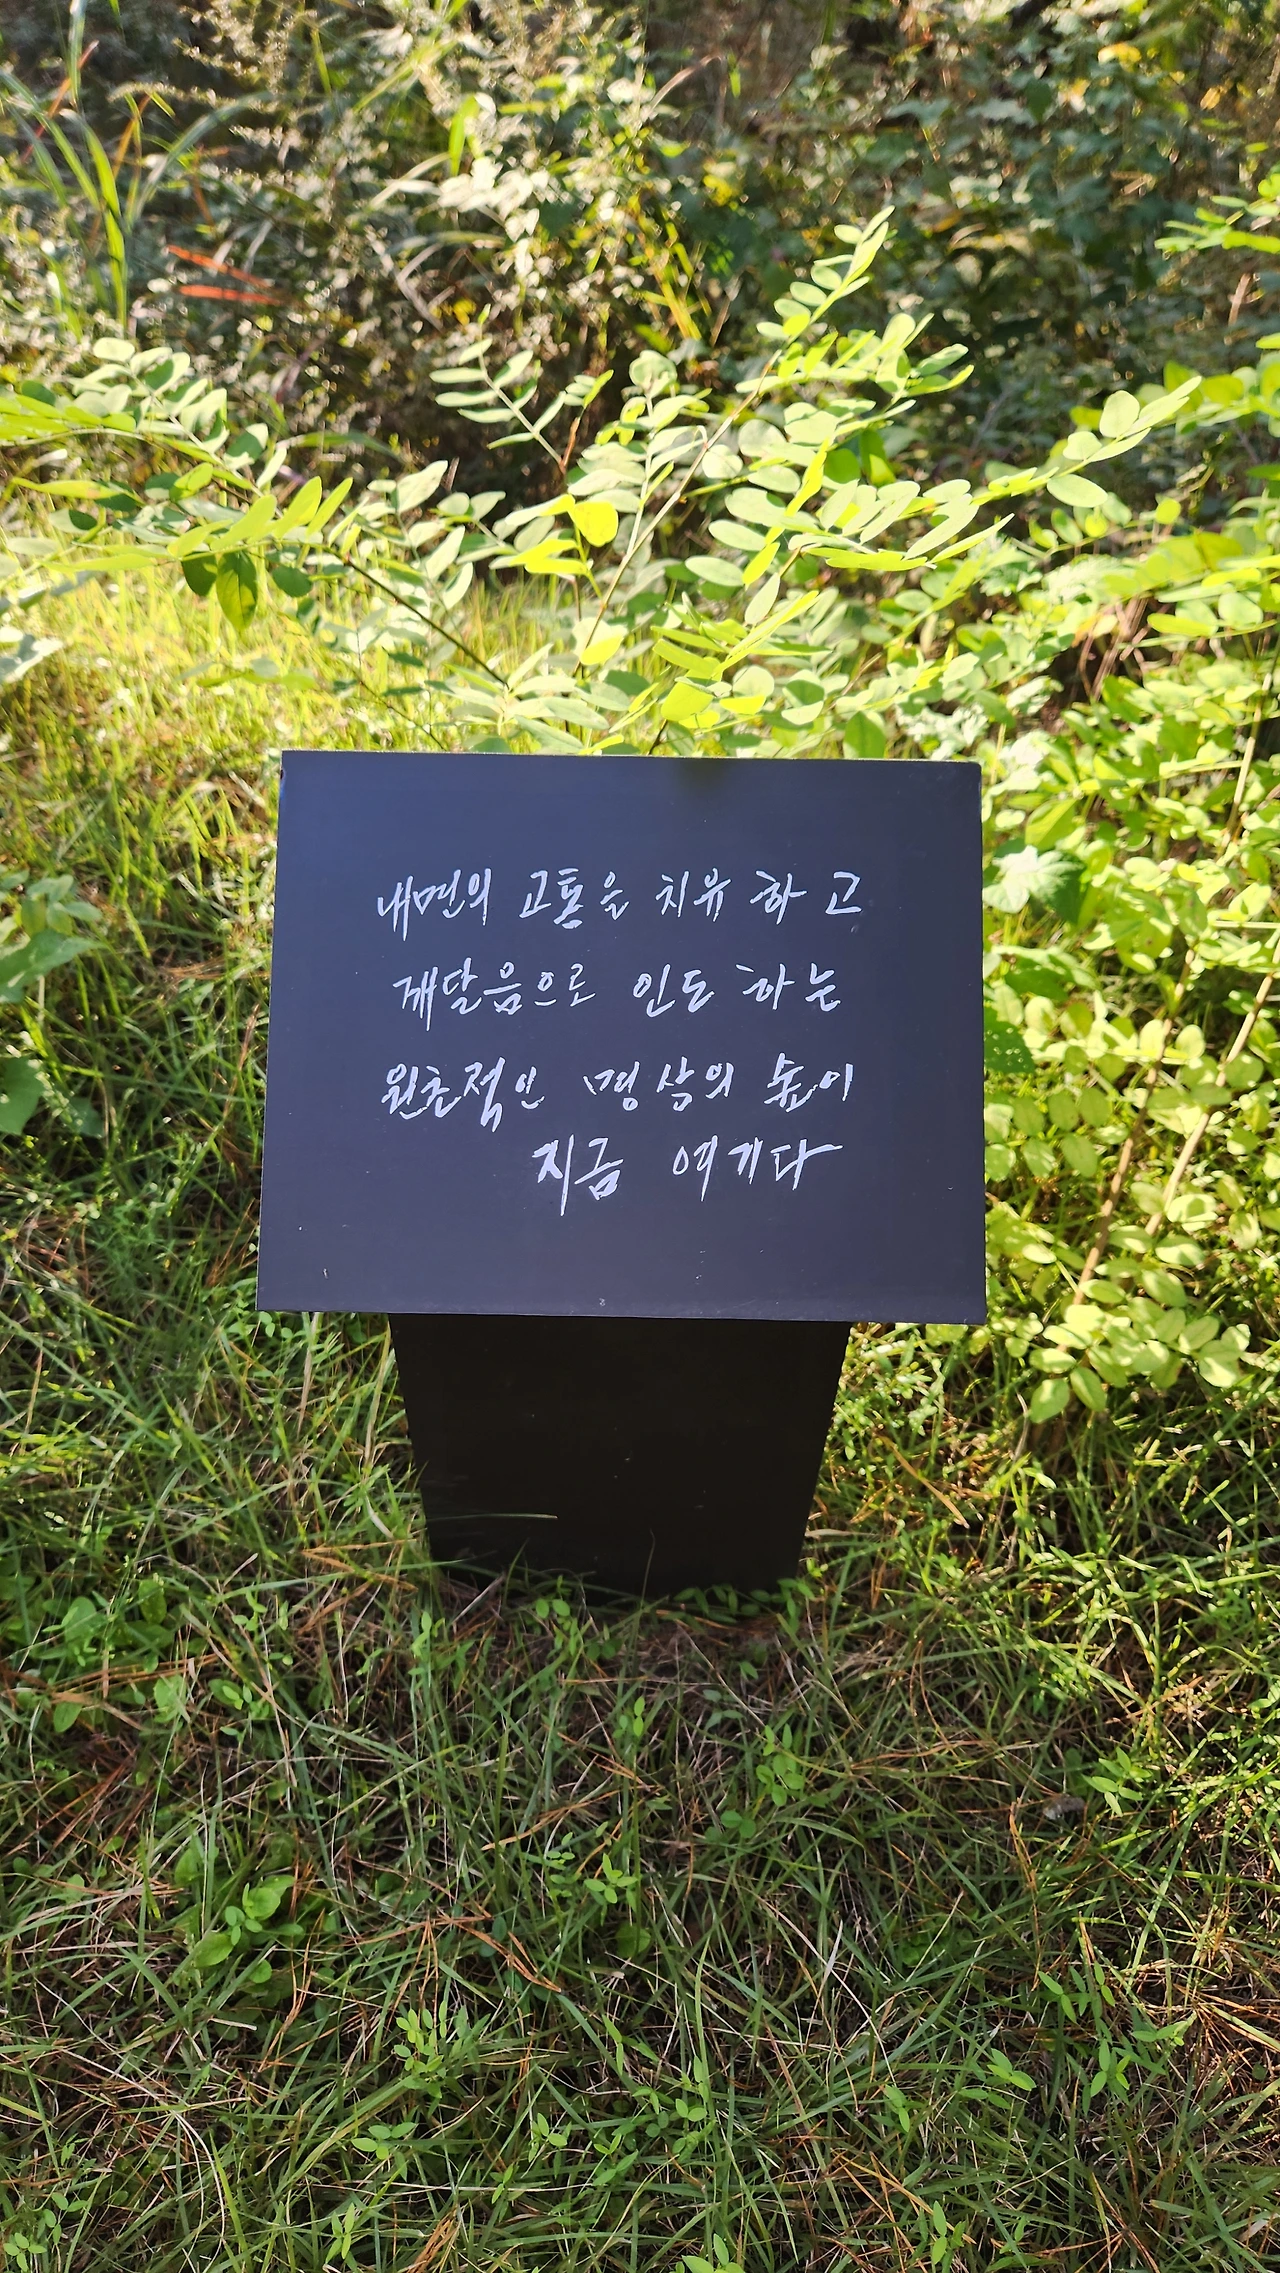 내면의 고통을 치유 하고
깨달음으로 인도 하는
원초적인 명상의 숲이
지금 여기다